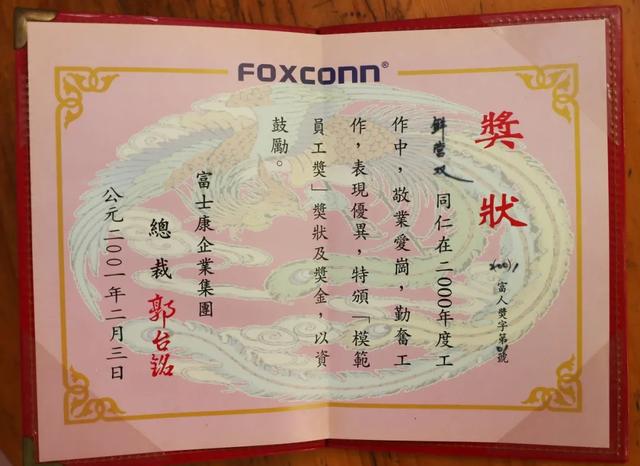 FOXCONN®
獎狀
富人獎字第 號
鮮營双 同仁在二000年度工
作中，敬業愛崗，勤奮工
作，表現優異，特頒「模範
員工獎」獎狀及獎金，以資
鼓勵。
富士康企業集團
總裁 郭台銘
公元二00一年二月三日